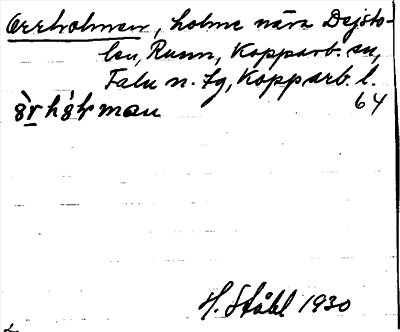 Orrholmen, holme nära Dejsto-
len, Runn, Kopparb. sn,
Falu n. tg, Kopparb. l.
64
H. Ståhl 1930